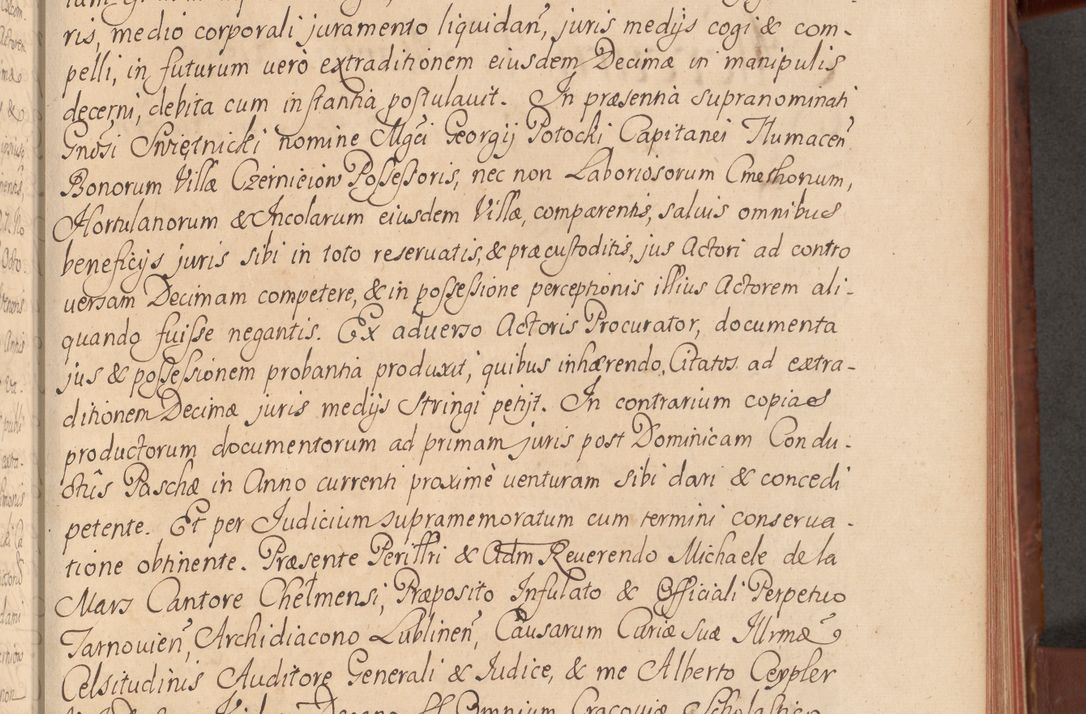 ris, medio corporali juramento liquidan̄, juris medijs cogi & com-
pelli, in futurum vero extraditionem eiusdem Decimæ in manipulis
decerni, debita cum instantia postulavit. In præsentia supranominati
Gnōsi Swiętnicki nomine Mgci Georgij Potocki Capitanei Tlumaceñ
Bonorum Villæ Czerniciow Possessoris, nec non Laboriosorum Cmethonum,
Hortulanorum & Incolarum eiusdem Villæ, comparentis, salvis omnibus
beneficijs juris sibi in toto reservatis, & præcustoditis, jus Actori ad contro
versam Decimam competere, & in possessione perceptionis illius Actorem ali-
quando fuisse negantis. Ex adverso Actoris Procurator, documenta
jus & possessionem probantia produxit, quibus inhærendo, Citatos ad extra-
ditionem Decimæ juris medijs stringi petijt. In contrarium copias
productorum documentorum ad primam juris post Dominicam Condu-
ctûs Paschæ in Anno currenti proximè venturam sibi dari & concedi
petente. Et per Judicium supramemoratum cum termini conserva-
tione obtinente. Præsente Perillri & Adm Reverendo Michaele de la
Mars Cantore Chelmensi, Præposito Infulato & Officiali Perpetuo
Tarnovieñ, Archidiacono Lublineñ, Causarum Curiæ suæ Illrmæ
Celsitudinis Auditore Generali & Judice, & me Alberto Ceypler
Decano Omnium Cracoviæ Scholastico